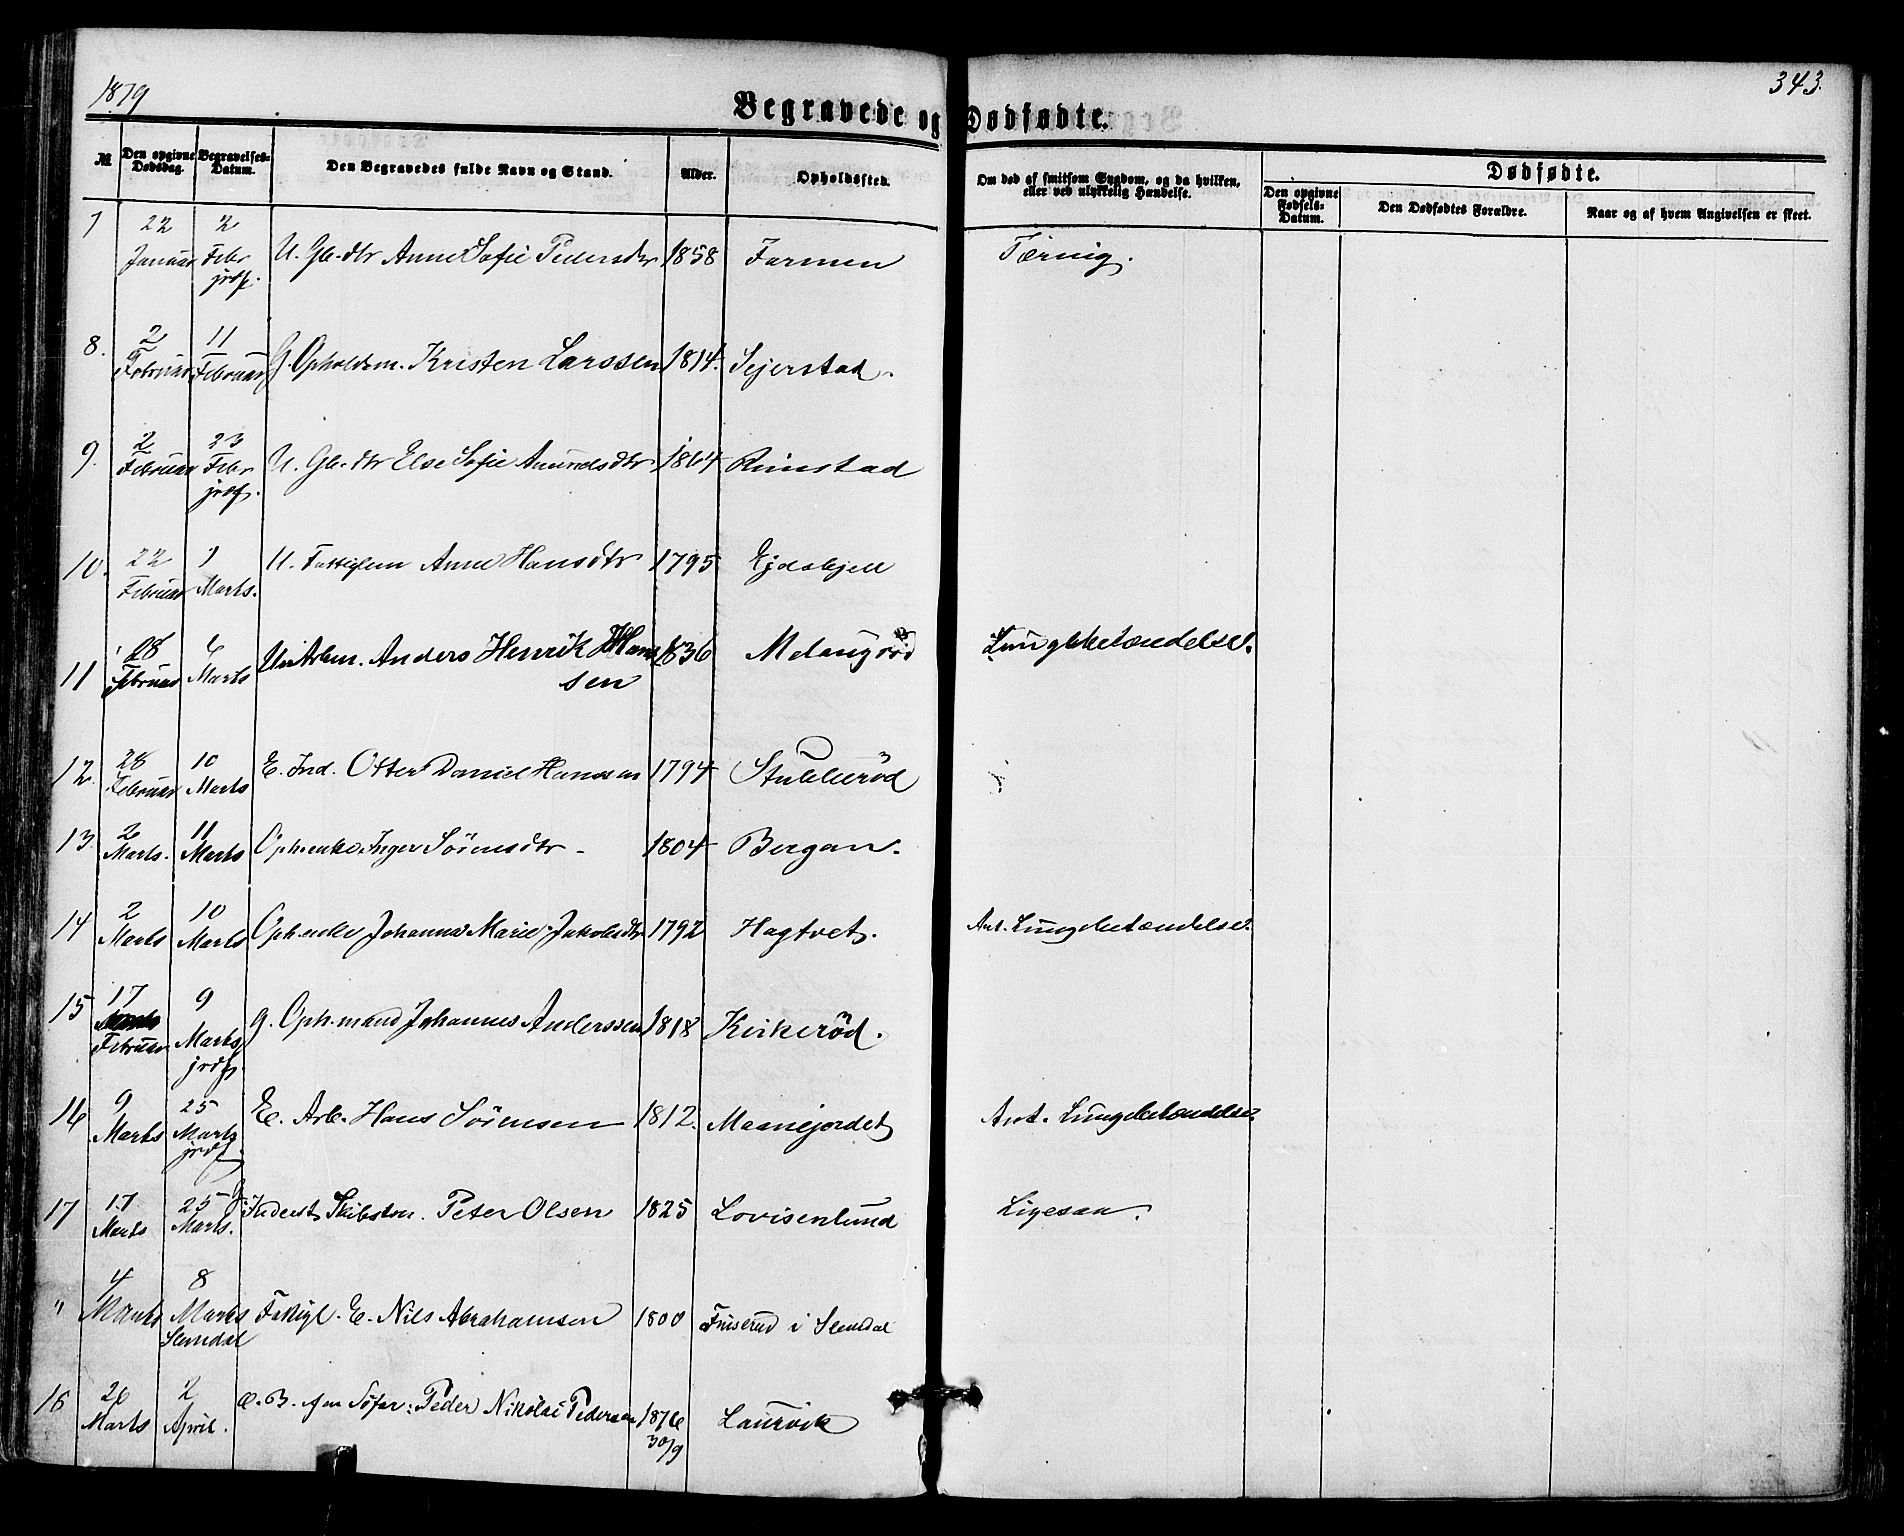 1879
343.
Begravede og Dødfødte.
№
Den opgivne Dødsdag.
Begravelses-Datum.
Den Begravedes fulde Navn og Stand.
Alder.
Opholdssted.
Om død af smitsom Sygdom, og da hvilken, eller ved ulykkelig Hændelse.
Dødfødte.
Den opgivne Fødsels-Datum.
Den Dødfødtes Forældre.
Naar og af hvem Angivelsen er skeet.
7 22 Januar 2 Febr jrdf. U. Gb.dtr Anne Sofie Pedersdtr 1858 Farmen Tæring.
8. 2 Februar 11 Februar G. Opholdsm. Kristen Larssen 1814. Sejerstad.
9. 2 Februar 23 Febr jrdf. U. Gb. dtr Else Sofie Amundsdtr 1864 Rimstad
10. 22 Februar 1 Marts. U. Fattiglem Anne Hansdtr 1795
11 28 Februar 6 Marts Arbm. Anders Henrik Hansen 1836 Melangrød Lungebetændelse.
12. 28 Februar 10 Marts E. Ind. Otter Daniel Hanssen 1794 Stubberød
13. 2 Marts. 11 Marts Oph.enke Inger Sörensdtr - 1804 Bergan.
14 2 Marts 10 Marts Oph.enke Johanne Marie Jakobsdtr 1792 Hagtvet. Ant. Lungebetændelse.
15 17 Februar 9 Marts jrdf. g. Oph.mand Johannes Anderssen 1818 Kirkeröd.
16 9 Marts 25 Marts jrdf. E. Arb. Hans Sörensen 1812. Maanejordet Ant. Lungebetændelse.
17 17 Marts 25 Marts. Skibstøm. Peter Olsen 1825 Lovisenlund Ligesaa.
" 4 Marts 8 Marts Slemdal Fattigl. E. Nils Abrahamsen 1800 i Slemdal
16 26 Marts 2 April. Peder Nikolai Pederssen 1876 30/9 Laurvik